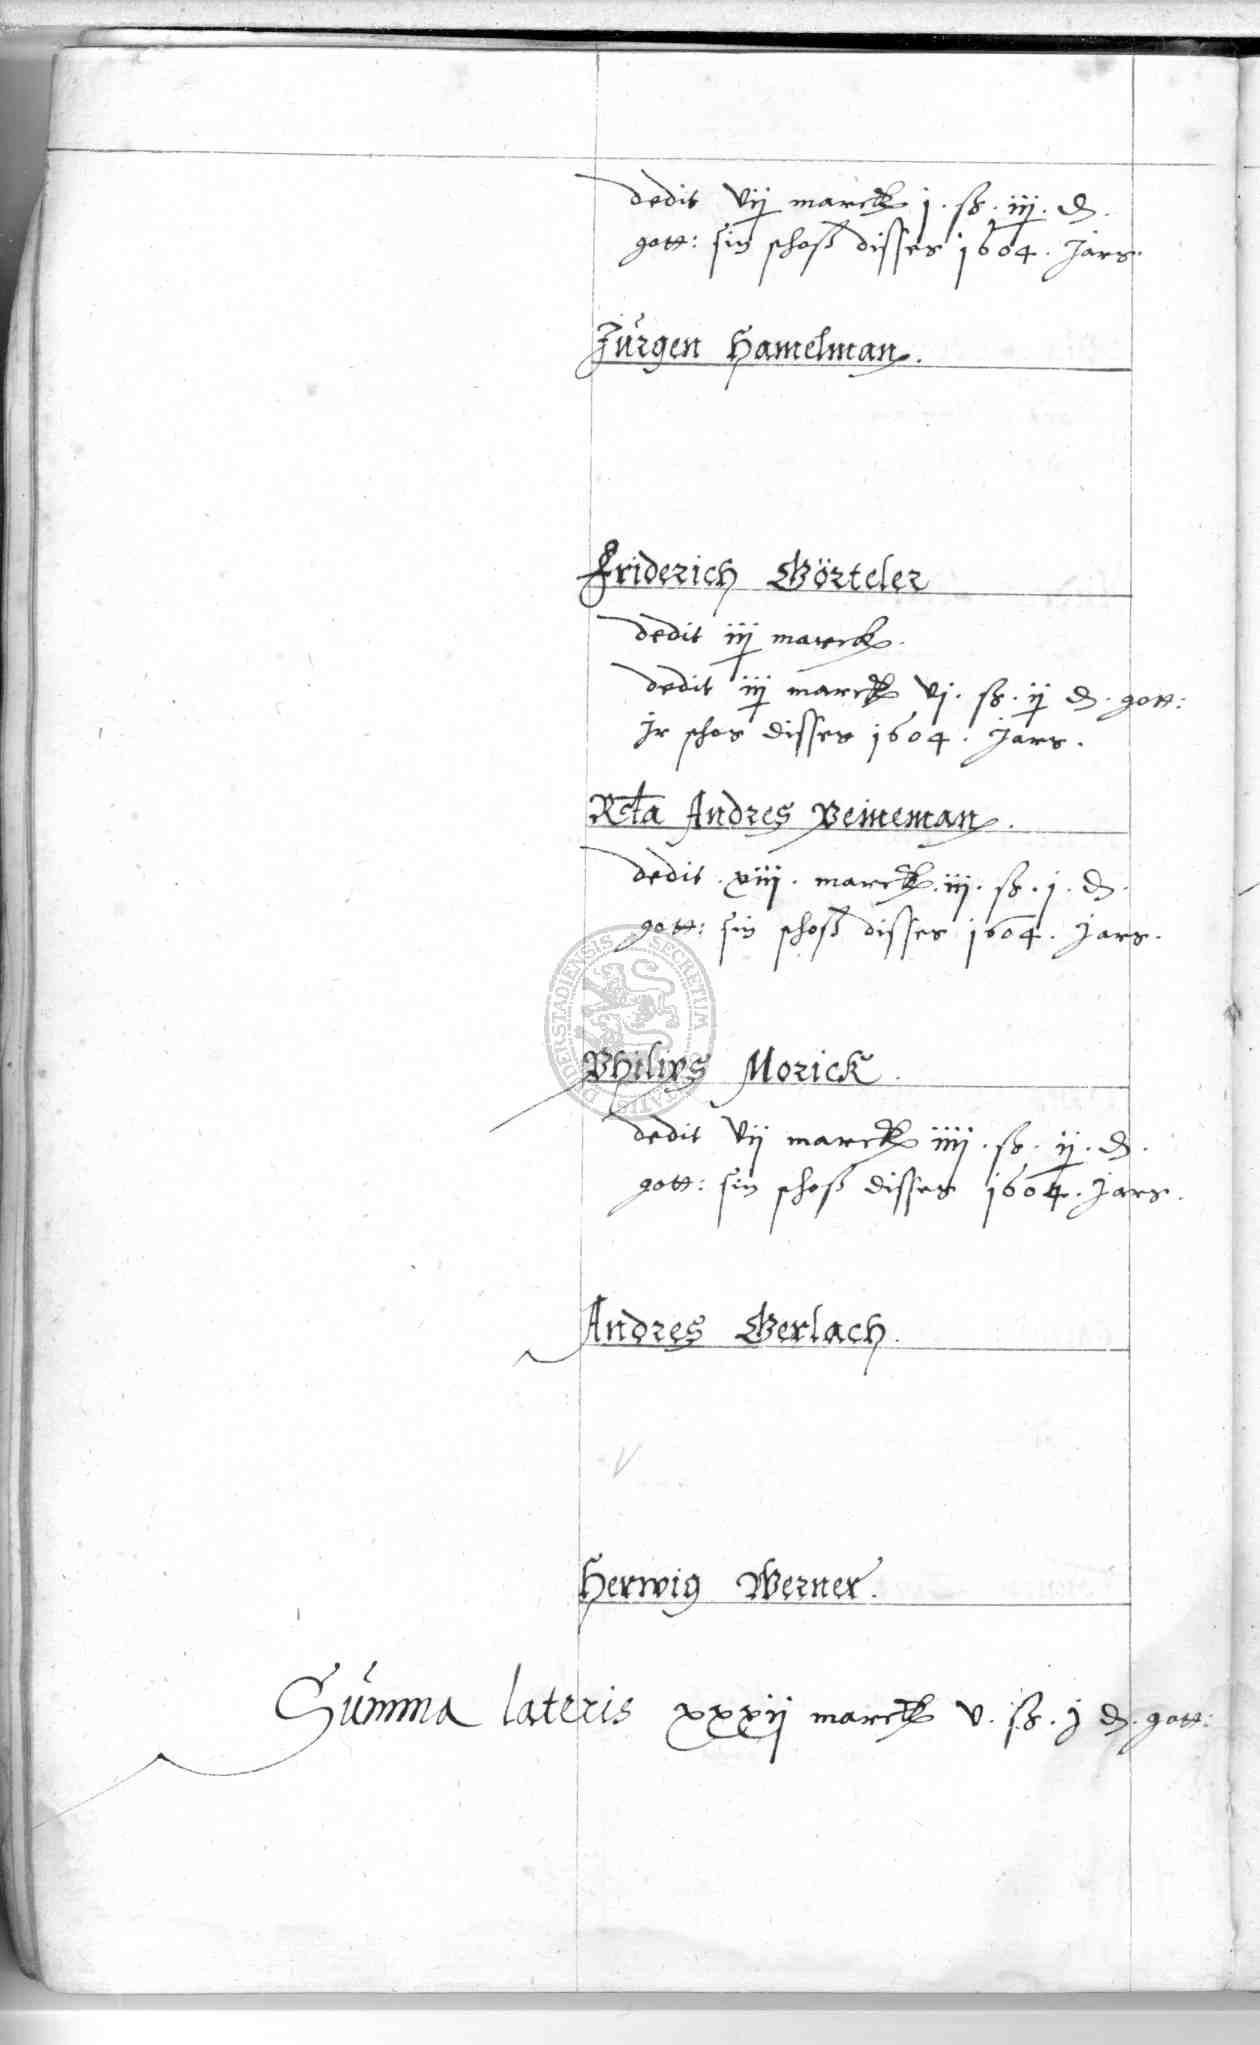 dedit vij marck j . ß . iij . d .
gott: sin schoß disses 1604 . Jars .
Jürgen Hamelman .
Friderich Görteler
dedit iij marck .
dedit iij marck vj . ß . ij d . gott:
Jr schos disses 1604 . Jars .
Rcta Andres Veineman .
dedit . xiij . marck . iij . ß . j . d .
gott: sin schoß disses 1604 . Jars .
SECRETUM
DUDERSTADIENSIS
Philips Morick .
dedit vij marck iiij . ß . ij . d .
gott: sin schoß disses 1604 . Jars .
Andres Gerlach .
Herwig Werner .
Summa lateris xxxij marck v . ß . j d . gott: